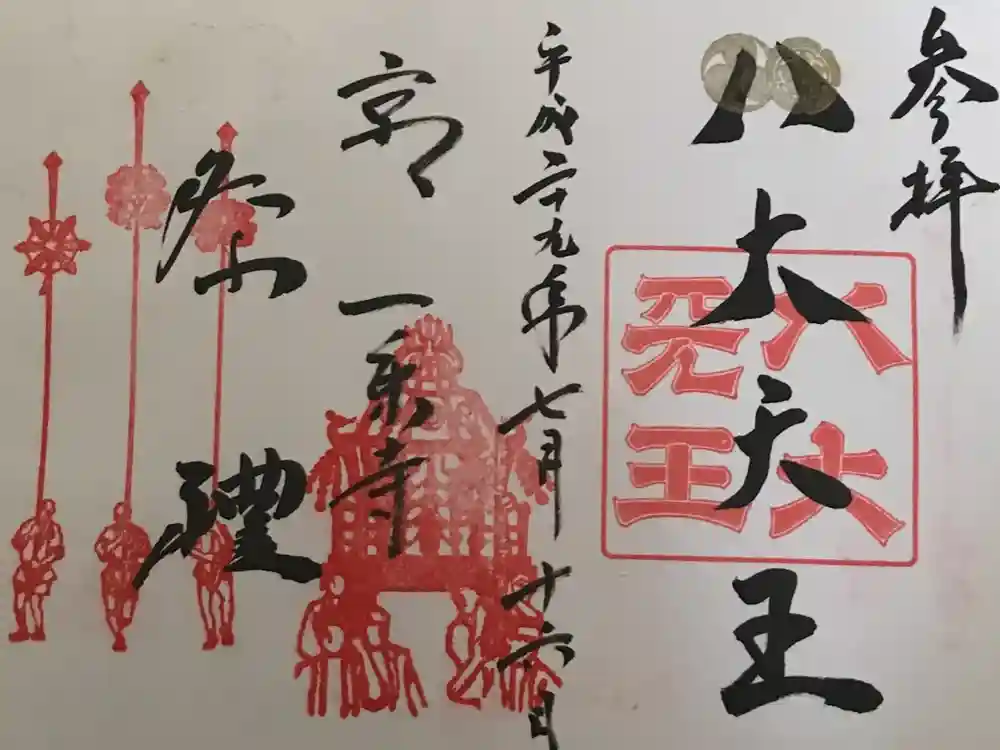 参拝
八大天王
八大
天王
平成二十九年七月十六日
京都一乗寺
祭禮